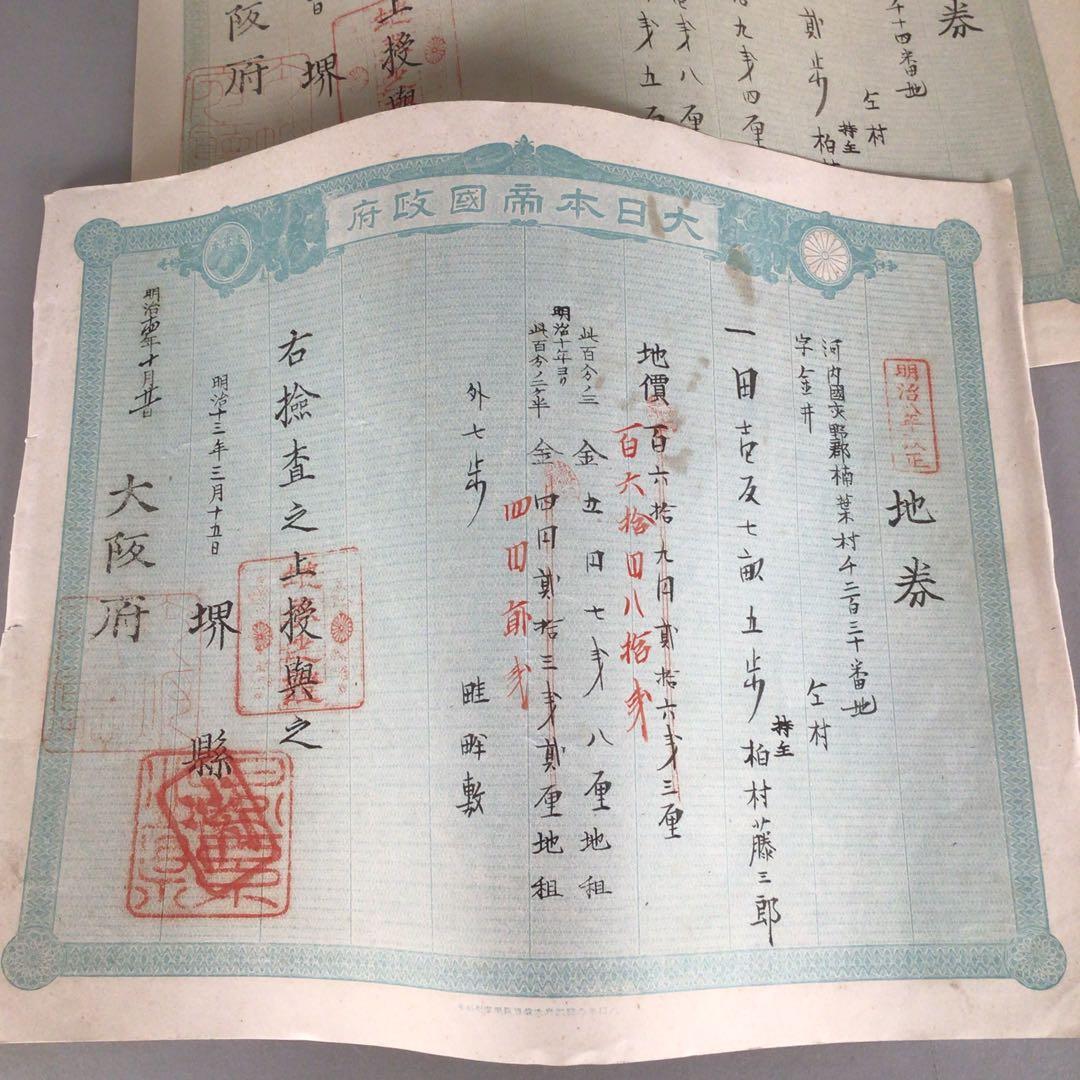 大日本帝國政府
地券
明治
河内國交野郡楠葉村千二百三十番地
字金井
仝村
一田壱反七畝五歩
持主
柏村藤三郎
地價百六拾九円貳拾六戔三厘
百六拾四円八拾戔
此百分ノ三
金五円七戔八厘地租
明治十年ヨリ
此百分ノ二ヶ半
金四円貳拾三戔貳厘地租
四円
外七歩
畦畔敷
右撿査之上授與之
明治十三年三月十五日
堺縣
明治
年十月
日
大阪府
千十四番地
仝村
貳歩
持主
九戔四厘
戔八厘
戔五
上授與
堺
阪府
券